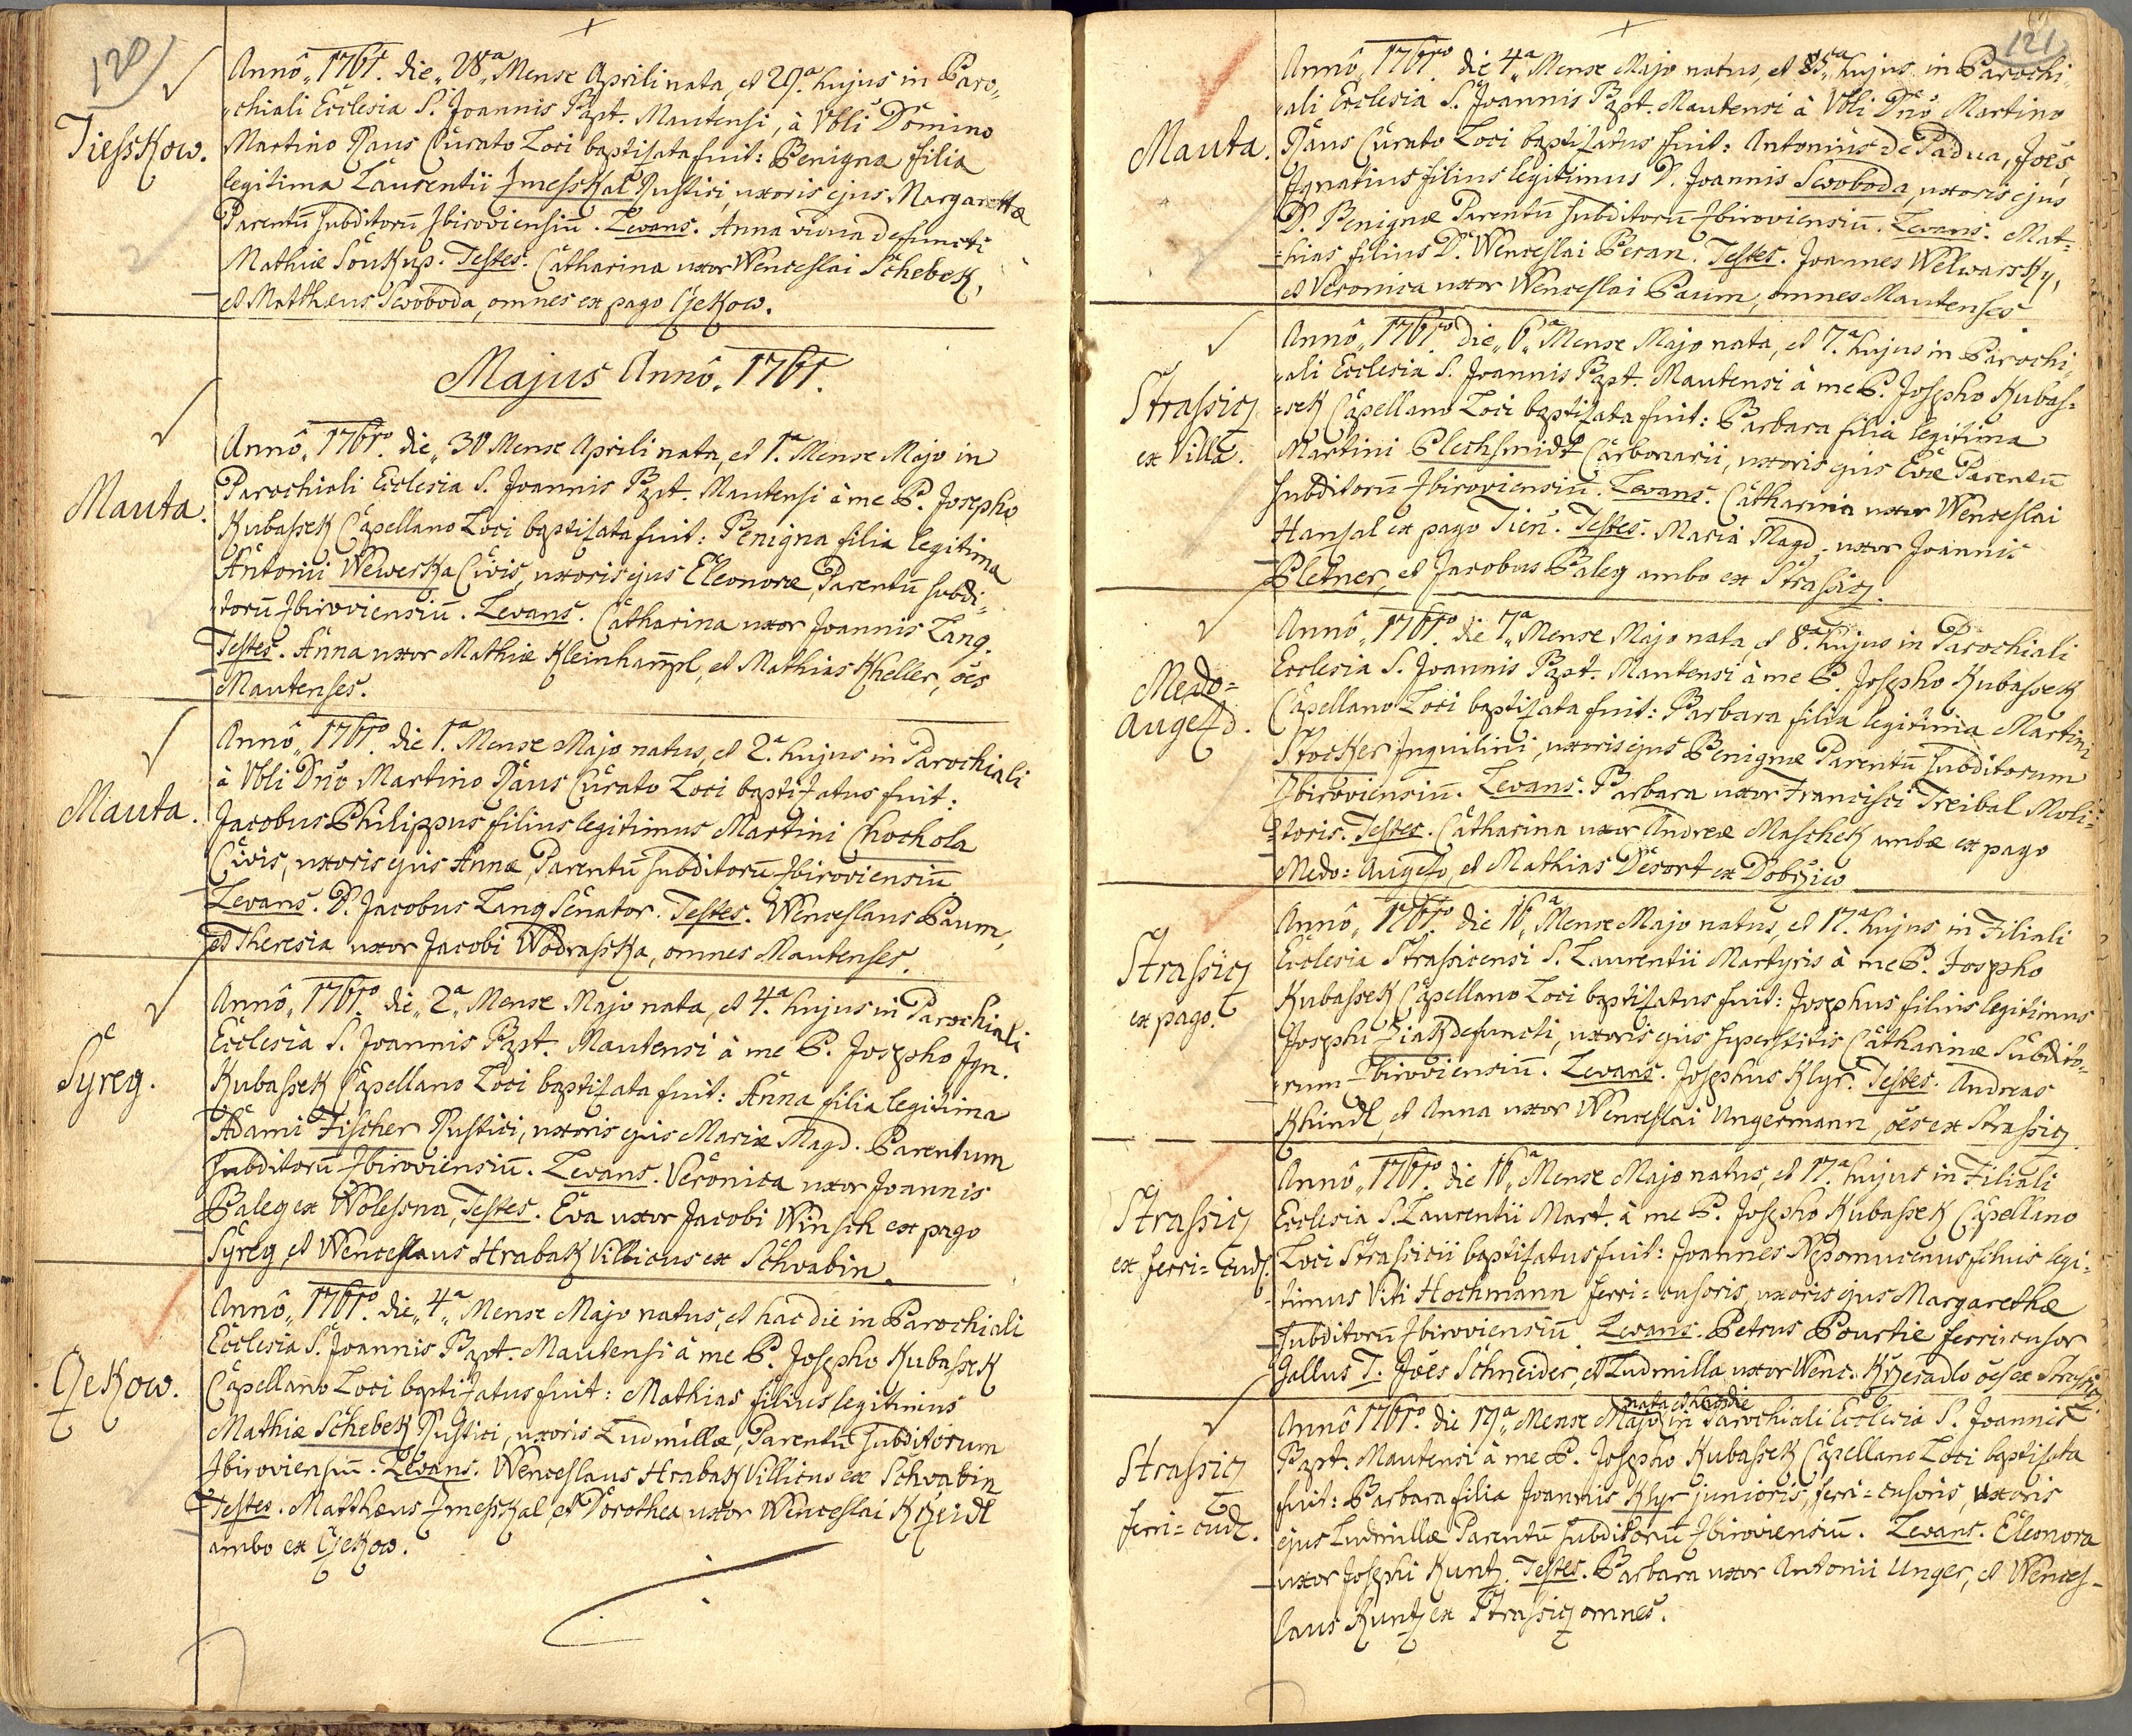 120
Tiesskow.
Annô, 1761. die „28.a Mense Aprili nata, et 29.a hujus in Paro„
„chiali Ecclesia S. Joannis Bapt. Mautensi, à Vbli Domino
Martino Raus Curato Loci baptizata fuit: Benigna filia
legitima Laurentii Zmesskal Rustici, uxoris ejus Margarethæ
Parentū subditorū Zbiroviensiū. Levans. Anna vidua defuncti
Mathiæ Soukup. Testes. Catharina uxor Wenceslai Schebek,
et Matthæus Swoboda, omnes ex pago Cžekow.
Majus Annô. 1761.
Mauta.
Annô, 1761mo. die „30 Mense Aprili nata, et 1.a Mense Majo in
Parochiali Ecclesia S. Joannis Bapt. Mautensi à me P. Josepho
Kubassek Capellano Loci baptizata fuit: Benigna filia legitima
Antonii Wewerka Civis, uxoris ejus Eleonoræ, Parentū subdi„
„torū Zbiroviensiū. Levans. Catharina uxor Joannis Lang.
Testes. Anna uxor Mathiæ Kleinhampl, et Mathias Kheller, oēs
Mautenses.
Mauta.
Annô, 1761mo. die 1.a Mense Majo natus, et 2.a hujus in Parochiali
à Vbli Dnō Martino Raus Curato Loci baptizatus fuit:
Jacobus Philippus filius legitimus Martini Chochola
Civis, uxoris ejus Annæ, Parentū subditorū Zbiroviensiū.
Levans. D. Jacobus Lang Senator. Testes. Wenceslaus Baum,
et Theresia uxor Jacobi Wodrasska, omnes Mautenses.
Syreg.
Annô, 1761mo. die „2.a Mense Majo nata, et 4.a hujus in Parochiali
Ecclesia S. Joannis Bapt. Mautensi à me P. Josepho Ign.
Kubassek Capellano Loci baptizata fuit: Anna filia legitima
Adami Fischer Rustici, uxoris ejus Mariæ Magd. Parentum
subditorū Zbiroviensiū. Levans. Veronica uxor Joannis
Baleg ex Wolessna, Testes. Eva uxor Jacobi Winsch ex pago
Syreg, et Wenceslaus Hrabak Villicus ex Schwabin.
Cžekow.
Annô, 1761mo. die „4.a Mense Majo natus, et hac die in Parochiali
Ecclesia S. Joannis Bapt. Mautensi à me P. Josepho Kubassek
Capellano Loci baptizatus fuit: Mathias filius legitimus
Mathiæ Schebek Rustici, uxoris Ludmillæ, Parentū subditorum
Zbiroviensiū. Levans. Wenceslaus Hrabak Villicus ex Schwabin
Testes. Matthæus Zmesskal, et Dorothea uxor Wenceslai Kržeidl
ambo ex Cžekow.
121
Mauta.
Annô, 1761mo. die 4.a Mense Majo natus, et 5.a hujus in Parochi„
„ali Ecclesia S. Joannis Bapt. Mautensi à Vbli Dnō Martino
Raus Curato Loci baptizatus fuit: Antonius de Padua, Joēs,
Ignatius filius legitimus D. Joannis Swoboda, uxoris ejus
D. Benignæ Parentū subditorū Zbiroviensiū. Levans. Mat=
=hias filius D. Wenceslai Beran. Testes. Joannes Welwarsky,
et Veronica uxor Wenceslai Baum, omnes Mautenses
Strassicz
ex Villa.
Annô, 1761mo. die „6.a Mense Majo nata, et 7.a hujus in Parochi„
„ali Ecclesia S. Joannis Bapt. Mautensi à me P. Josepho Kubas=
=sek Capellano Loci baptizata fuit: Barbara filia legitima
Martini Plechsmidt Carbonarii, uxoris ejus Evæ Parentū
subditorū Zbiroviensiū. Levans. Catharina uxor Wenceslai
Hansal ex pago Tien. Testes. Maria Magd. uxor Joannis
Pletner, et Jacobus Baleg ambo ex Strassicz.
Medo=
Augezd.
Annô, 1761mo. die 7.a Mense Majo nata, et 8.a hujus in Parochiali
Ecclesia S. Joannis Bapt. Mautensi à me P. Josepho Kubassek
Capellano Loci baptizata fuit: Barbara filia legitima Martini
Stocker Inquilini, uxoris ejus Benignæ Parentū subditorum
Zbiroviensiū. Levans. Barbara uxor Francisci Treibal Moli=
=toris. Testes. Catharina uxor Andreæ Maschek ambæ ex pago
Medo=Augezd, et Mathias Desort ex Dobržiw
Strassicz
ex pago.
Annô, 1761mo. die 16.a Mense Majo natus, et 17.a hujus in Filiali
Ecclesia Strassicensi S. Laurentii Martyris à me P. Josepho
Kubassek Capellano Loci baptizatus fuit: Josephus filius legitimus
Josephi Ziak defuncti, uxoris ejus superstitis Catharinæ Subdito=
=rum Zbiroviensiū. Levans. Josephus Klyr. Testes. Andreas
Khindl, et Anna uxor Wenceslai Ungermann, oēs ex Strassicz.
Strassicz
ex ferri=cud.
Annô, 1761mo. die 16.a Mense Majo natus, et 17.a hujus in Filiali
Ecclesia S. Laurentii Mart. à me P. Josepho Kubassek Capellano
Loci Strassicii baptizatus fuit: Joannes Nepomucenus filius legi=
timus Viti Hochmann ferri=cusoris, uxoris ejus Margarethæ
subditorū Zbiroviensiū. Levans. Petrus Pourtie ferri cusor
Gallus T. Joēs Schneider, et Ludmilla uxor Wenc. Kržesadlo oēs ex Strassicz.
Strassicz
ferri=cud.
nata et hac die
Annô 1761mo. die 19.a Mense Majo in Parochiali Ecclesia S. Joannis
Bapt. Mautensi à me P. Josepho Kubassek Capellano Loci baptizata
fuit: Barbara filia Joannis Klyr junioris, ferri=cusoris, uxoris
ejus Ludmillæ Parentū subditorū Zbiroviensiū. Levans. Eleonora
uxor Josephi Kuntz. Testes. Barbara uxor Antonii Unger, et Wences=
laus Kuntz ex Strassicz omnes.